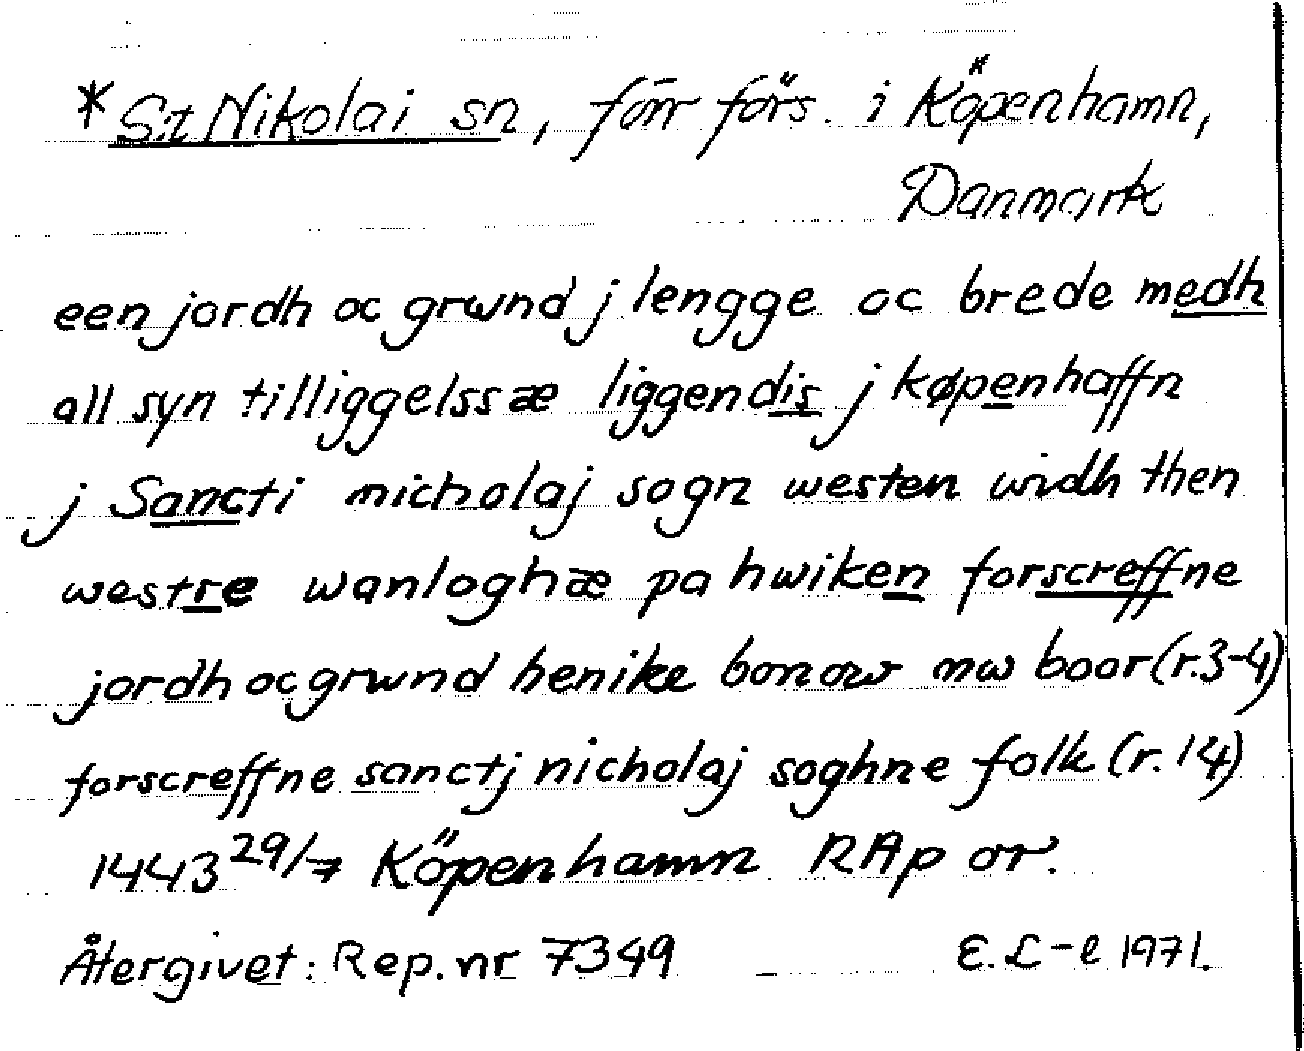 *S:t Nikolai sn, förr förs. i Köpenhamn,
Danmark
een jordh oc grwnd j lengge oc brede medh
all syn tilliggelssæ liggendis j køpenhaffn
j Sancti nicholaj sogn westen widh then
westre wanloghæ pa hwiken forscreffne
jordh oc grwnd henike bonow nw boor (r.3-4)
forscreffne sanctj nicholaj soghne folk (r. 14)
1443 29/7 Köpenhamn RAp or.
Återgivet: Rep. nr 7349 E. L-l 1971.